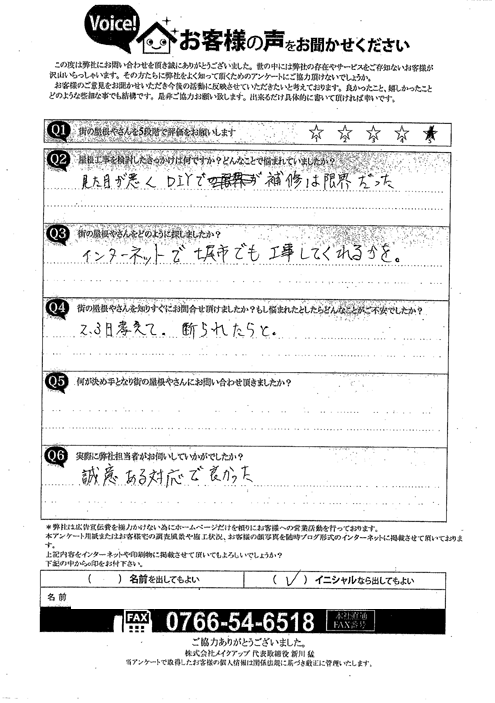 Voice!
お客様の声をお聞かせください
この度は弊社にお問い合わせを頂き誠にありがとうございました。世の中には弊社の存在やサービスをご存知ないお客様が
沢山いらっしゃいます。その方たちに弊社をよく知って頂くためのアンケートにご協力頂けないでしょうか。
お客様のご意見をお聞かせいただき今後の活動に反映させていただきたいと考えております。良かったこと、嬉しかったこと
どのような些細な事でも結構です。是非ご協力お願い致します。出来るだけ具体的に書いて頂ければ幸いです。
Q1 街の屋根やさんを5段階で評価をお願いします ☆ ☆ ☆ ☆ ★
Q2 屋根工事を検討したきっかけは何ですか？どんなことで悩まれていましたか？
見た目が悪く DIYで 補修は限界だった
Q3 街の屋根やさんをどのように探しましたか？
インターネットで 市でも工事してくれるかを。
Q4 街の屋根やさんを知りすぐにお問合せ頂けましたか？もし悩まれたとしたらどんなことがご不安でしたか？
2、3日考えて。断られたらと。
Q5 何が決め手となり街の屋根やさんにお問い合わせ頂きましたか？
Q6 実際に弊社担当者がお伺いしていかがでしたか？
誠意ある対応で良かった
＊弊社は広告宣伝費を極力かけない為にホームページだけを頼りにお客様への営業活動を行っております。
本アンケート用紙またはお客様宅の調査風景や施工状況、お客様の顔写真を随時ブログ形式のインターネットに掲載させて頂いております。
上記内容をインターネットや印刷物に掲載させて頂いてもよろしいでしょうか？
下記の中から○印をお付下さい。
（ ）名前を出してもよい （✓）イニシャルなら出してもよい
名前
FAX 0766-54-6518 本社直通FAX番号
ご協力ありがとうございました。
株式会社メイクアップ 代表取締役 新川 猛
当アンケートで取得したお客様の個人情報は関係法規に基づき厳正に管理いたします。